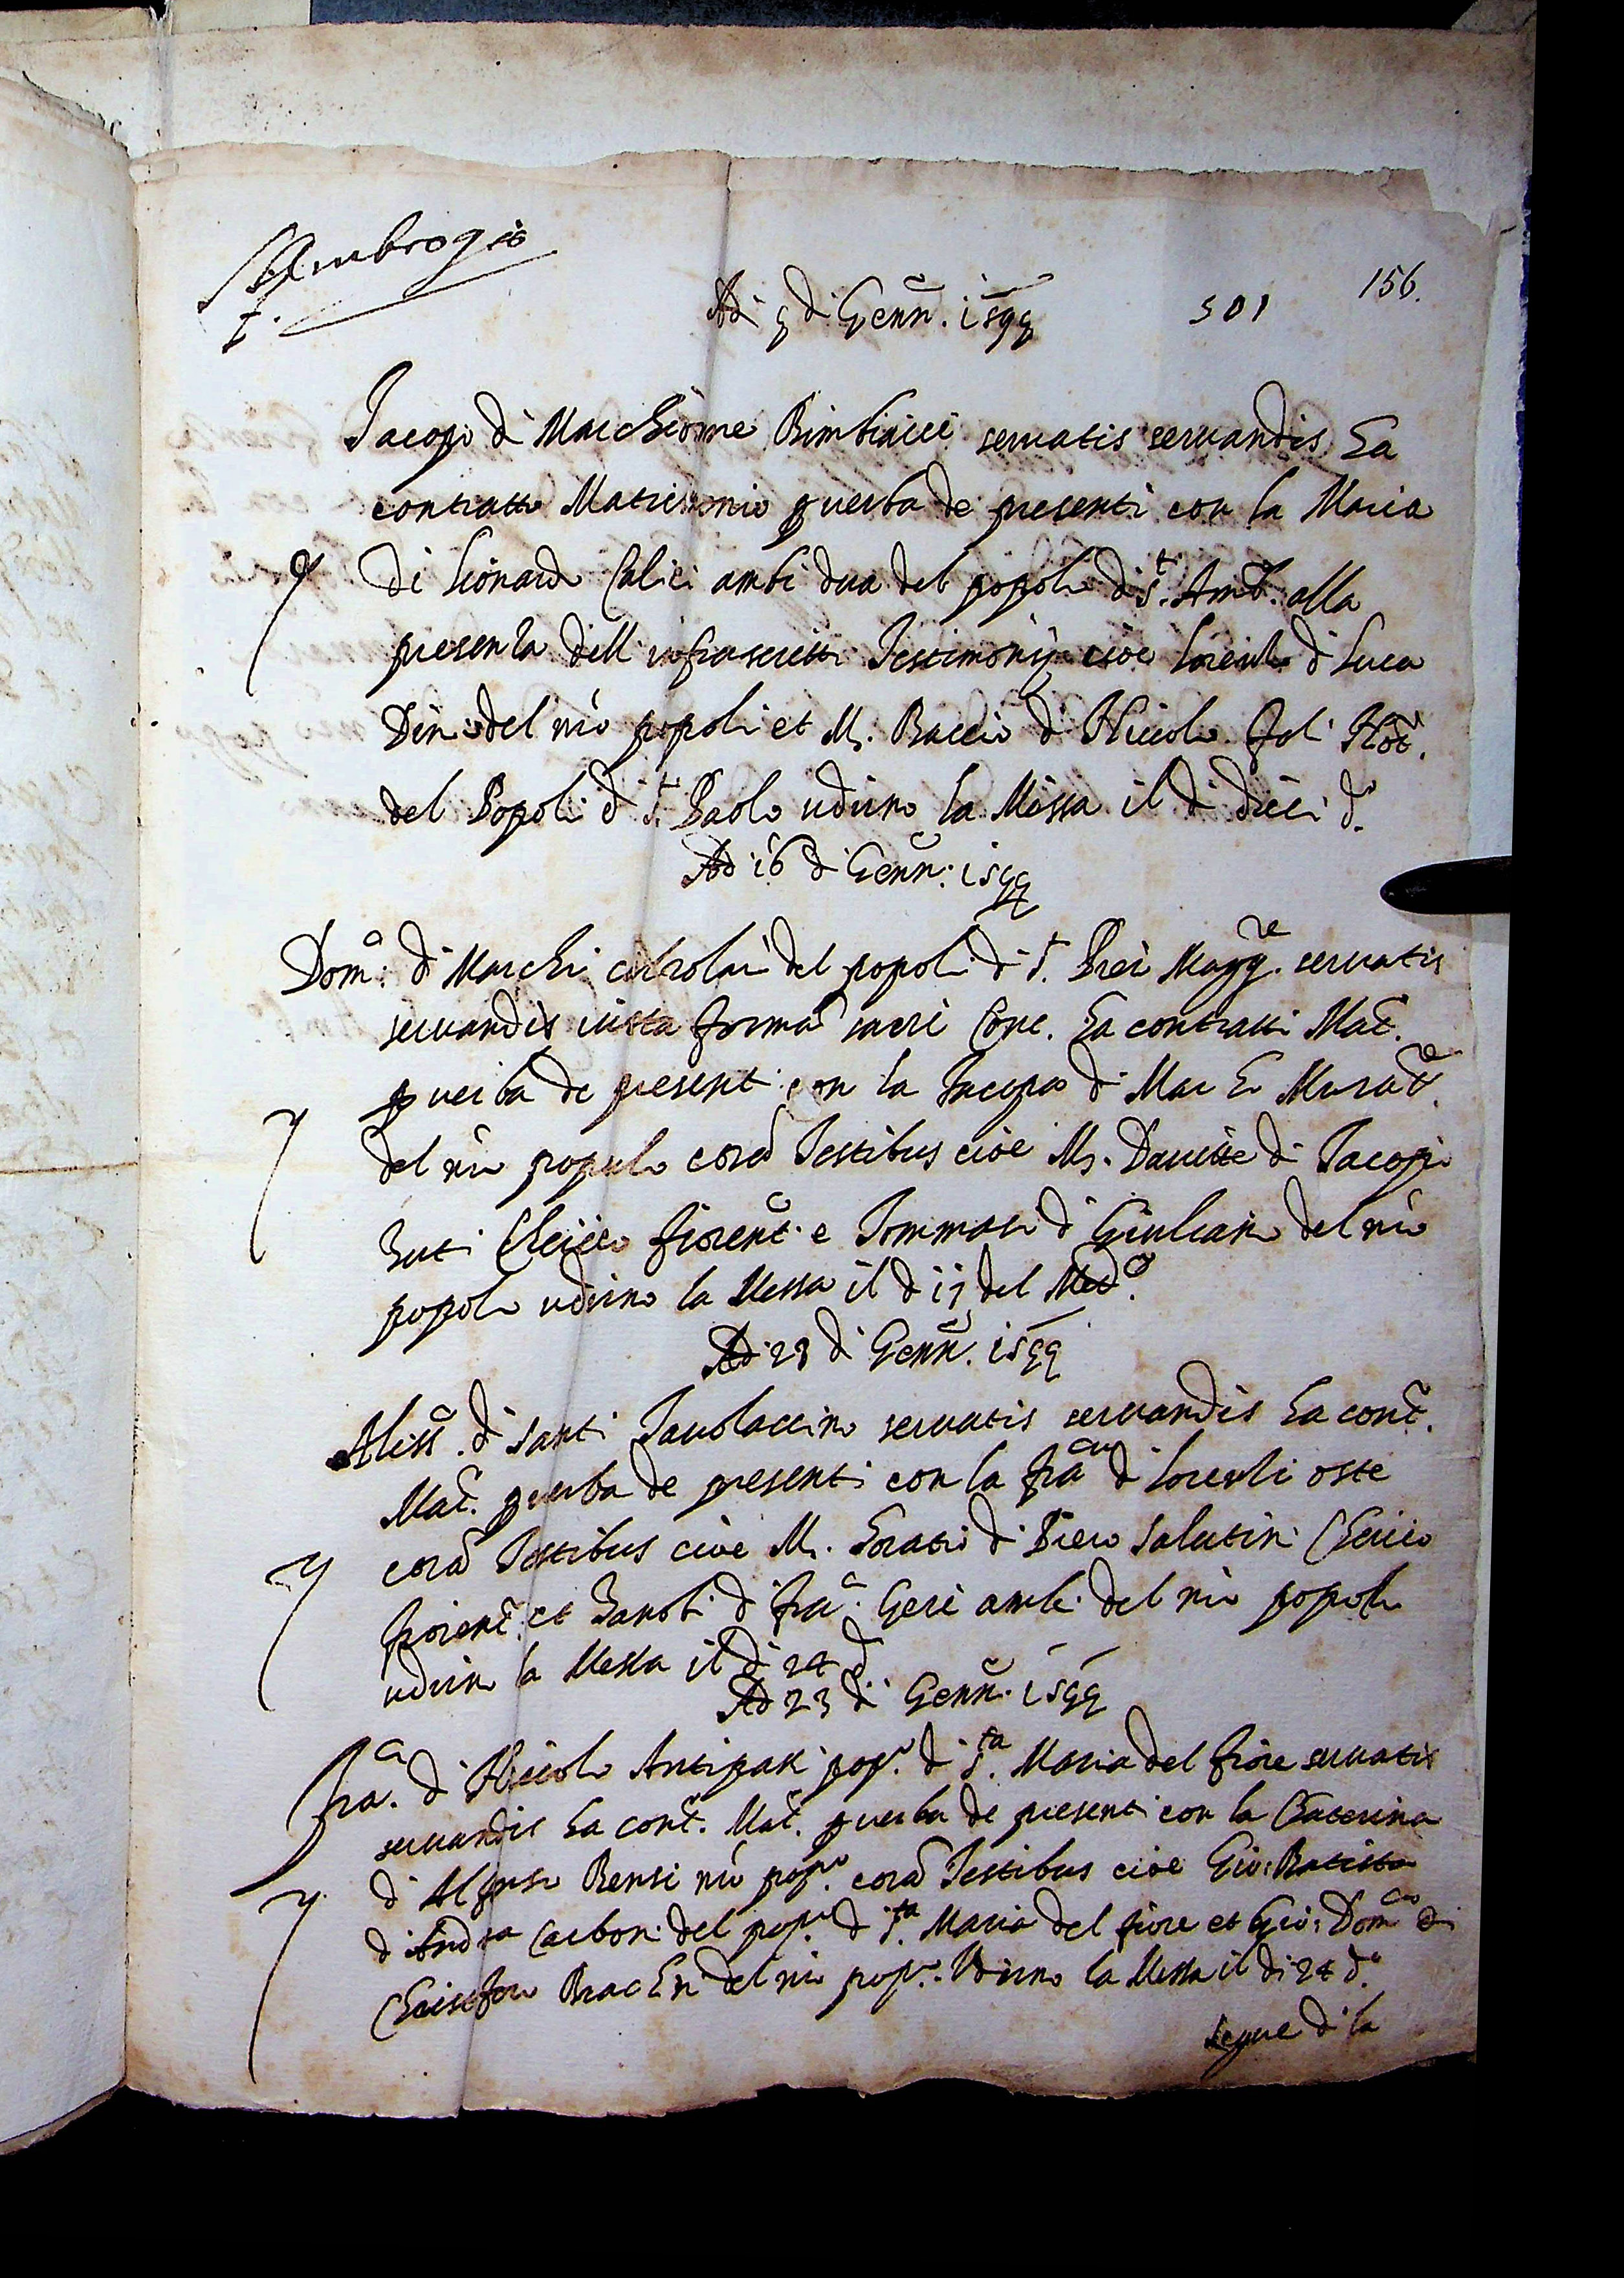 S Ambrogio
156.
501
Adi 9 di Genn. 1599
Jacopo di Marchionne Bimbiacci servatis servandis ha
contratto Matrimonio p verba de presenti con la Maria
di Lionardo Calici ambi dua del popolo di S.to Amb. alla
presenza delli infrascritti Testimonij cioe Lorenzo di Luca
Dini del mio popolo et M. Baccio di Niccolo Not.
del Popolo di S.to Paolo udirno la Messa il di dieci d.o
Adi 16 di Genn. 1599
Dom.o di Marcho del popolo di S.to Pier Magg.re servatis
servandis iusta formā sacri Conc. ha contratto Mat.
p verba de presenti con la Jacopa di Marco Murat.e
del mio popolo corā Testibus cioe M. Davitte di Jacopo
Buti Cherico fiorent. e Tommaso di Giuliano del mio
popolo udirno la Messa il di 17 del Med.o
Adi 23 di Genn. 1599
Aless.o di Santi Tavolaccino servatis servandis ha cont.
Mat. p verba de presenti con la fra.ca di Lorenzo oste
corā Testibus cioe M. Horatio di Piero Salutini Cherico
fiorent. et Zanobi di fra.o Geri ambi del mio popolo
udirno la Messa il di 24 d.o
Adi 23 di Genn. 1599
Fra.o di Niccolo pop.o di S.ta Maria del fiore servatis
servandis ha cont. Mat. p verba de presenti con la Chaterina
d Alfonso Bensi mio pop.o corā Testibus cioe Gio: Batista
di Andrea Carboni del pop.o di S.ta Maria del fiore et Gio: Dom.co di
Christofano Bracchi del mio pop.o Udirno la Messa il di 24 d.o
segue di la